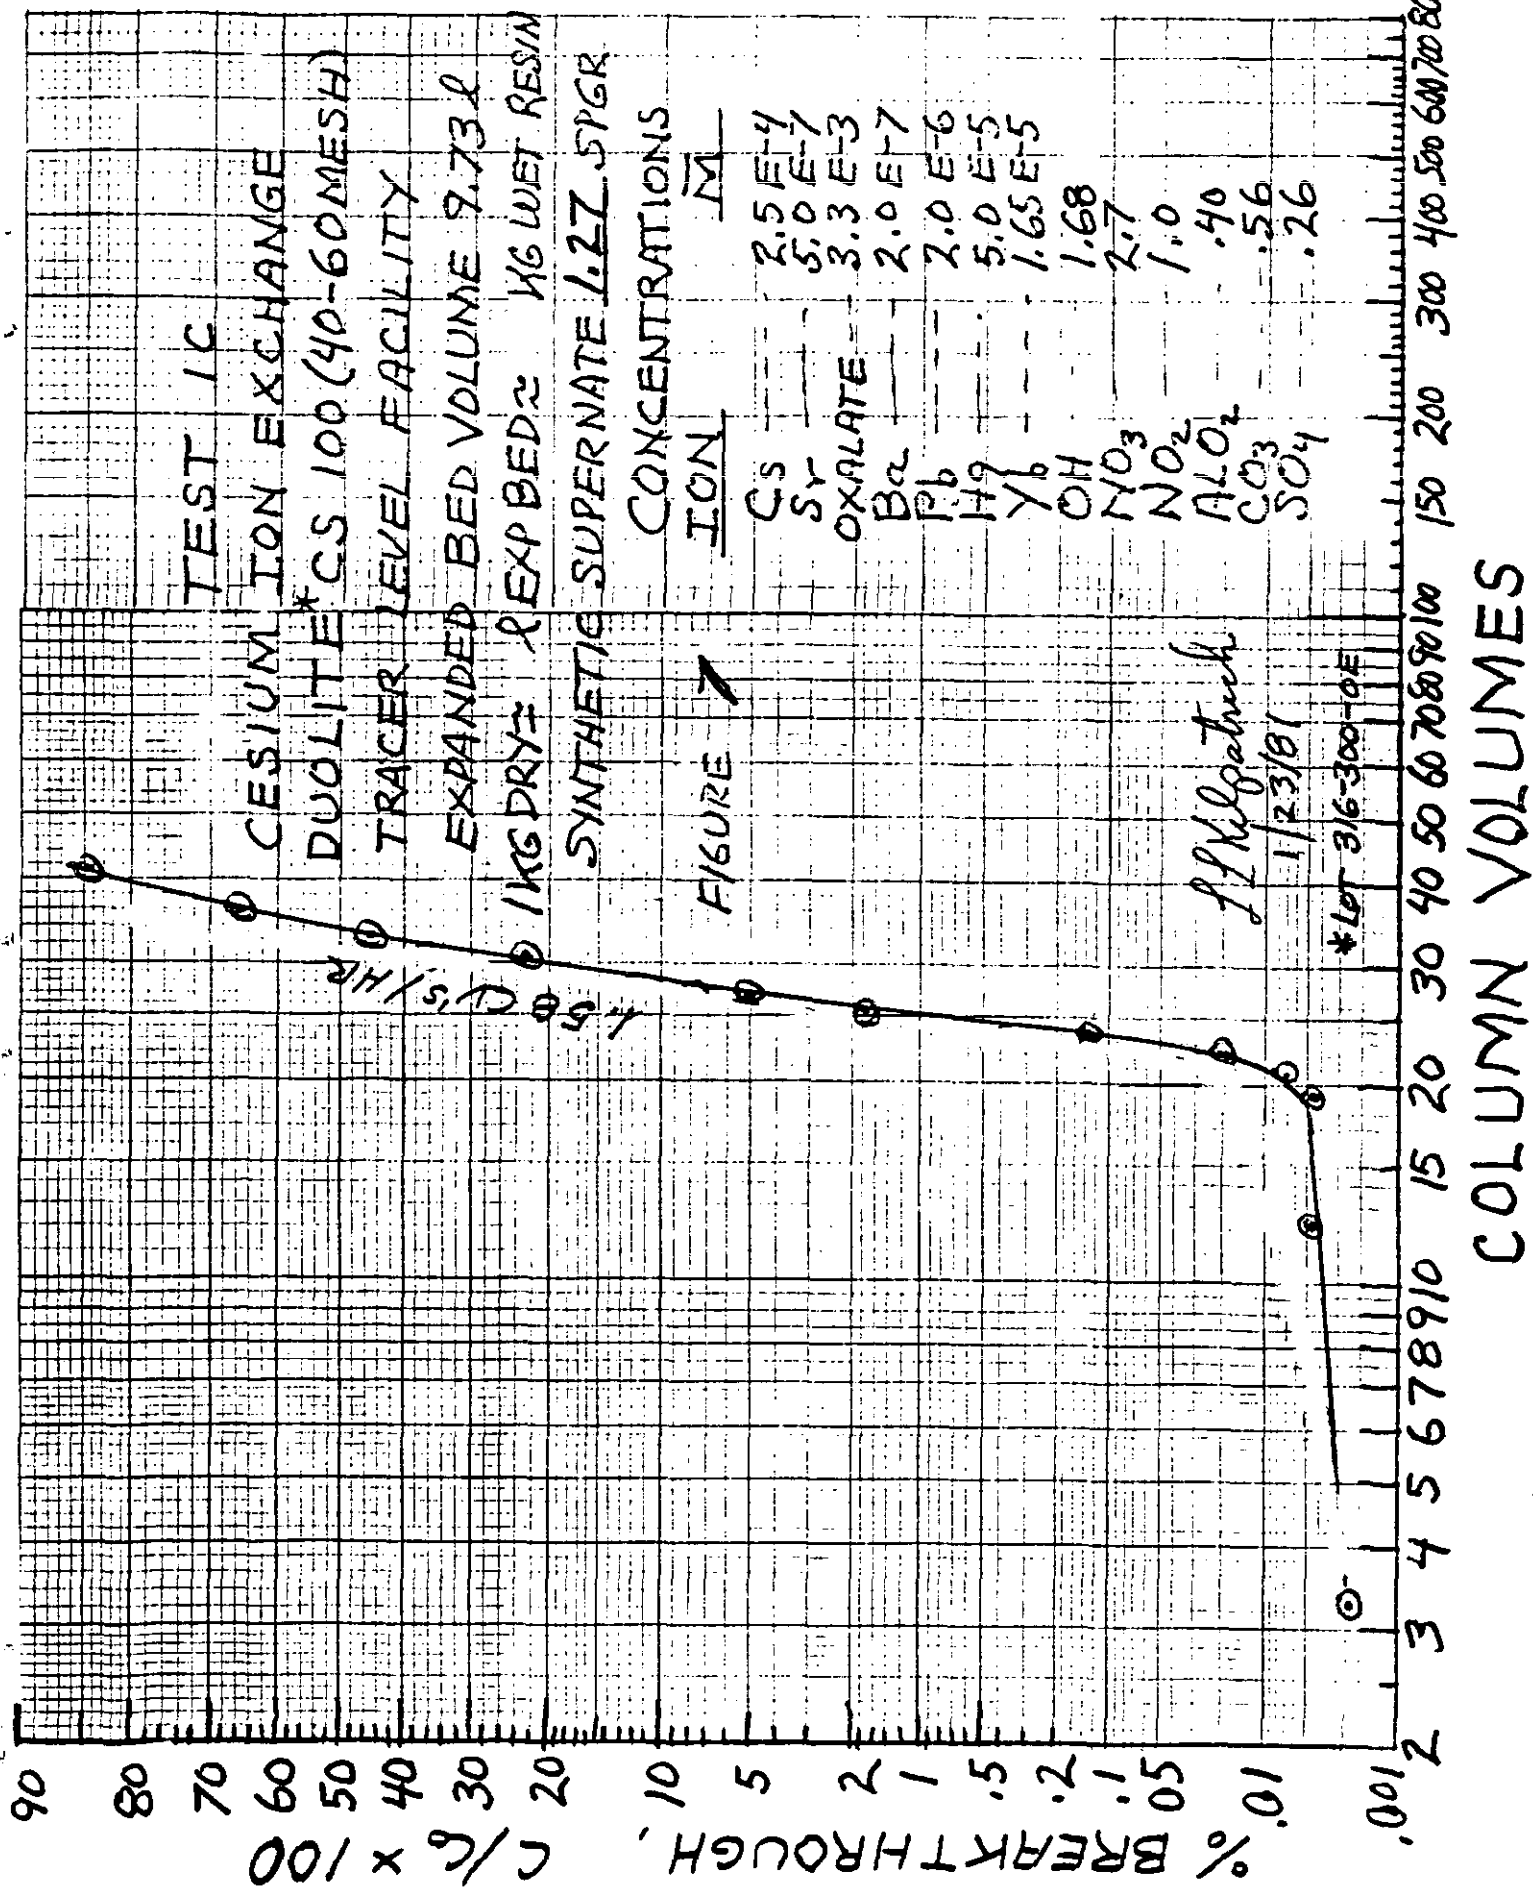 TEST 1C
CESIUM ION EXCHANGE
DUOLITE* CS 100 (40-60 MESH)
TRACER LEVEL FACILITY
EXPANDED BED VOLUME 9.73 l
1 KG DRY ≈ l EXP BED ≈ KG WET RESIN
SYNTHETIC SUPERNATE 1.27 SPGR
CONCENTRATIONS
ION M
Cs ---- 2.5 E-4
Sr ---- 5.0 E-7
OXALATE -- 3.3 E-3
Ba ---- 2.0 E-7
Pb ---- 2.0 E-6
Hg ---- 5.0 E-5
Yb ---- 1.65 E-5
OH 1.68
NO3 2.7
NO2 1.0
ALO2 .40
CO3 ---- .56
SO4 ---- .26
FIGURE 7
CV'S/HR
L L Kilpatrick
1/23/81
*LOT 316-300-0E
% BREAKTHROUGH, C/C0 × 100
90
80
70
60
50
40
30
20
10
5
2
1
.5
.2
.1
.05
.01
.001
2 3 4 5 6 7 8 9 10 15 20 30 40 50 60 70 80 90 100 150 200 300 400 500 600 700 80
COLUMN VOLUMES